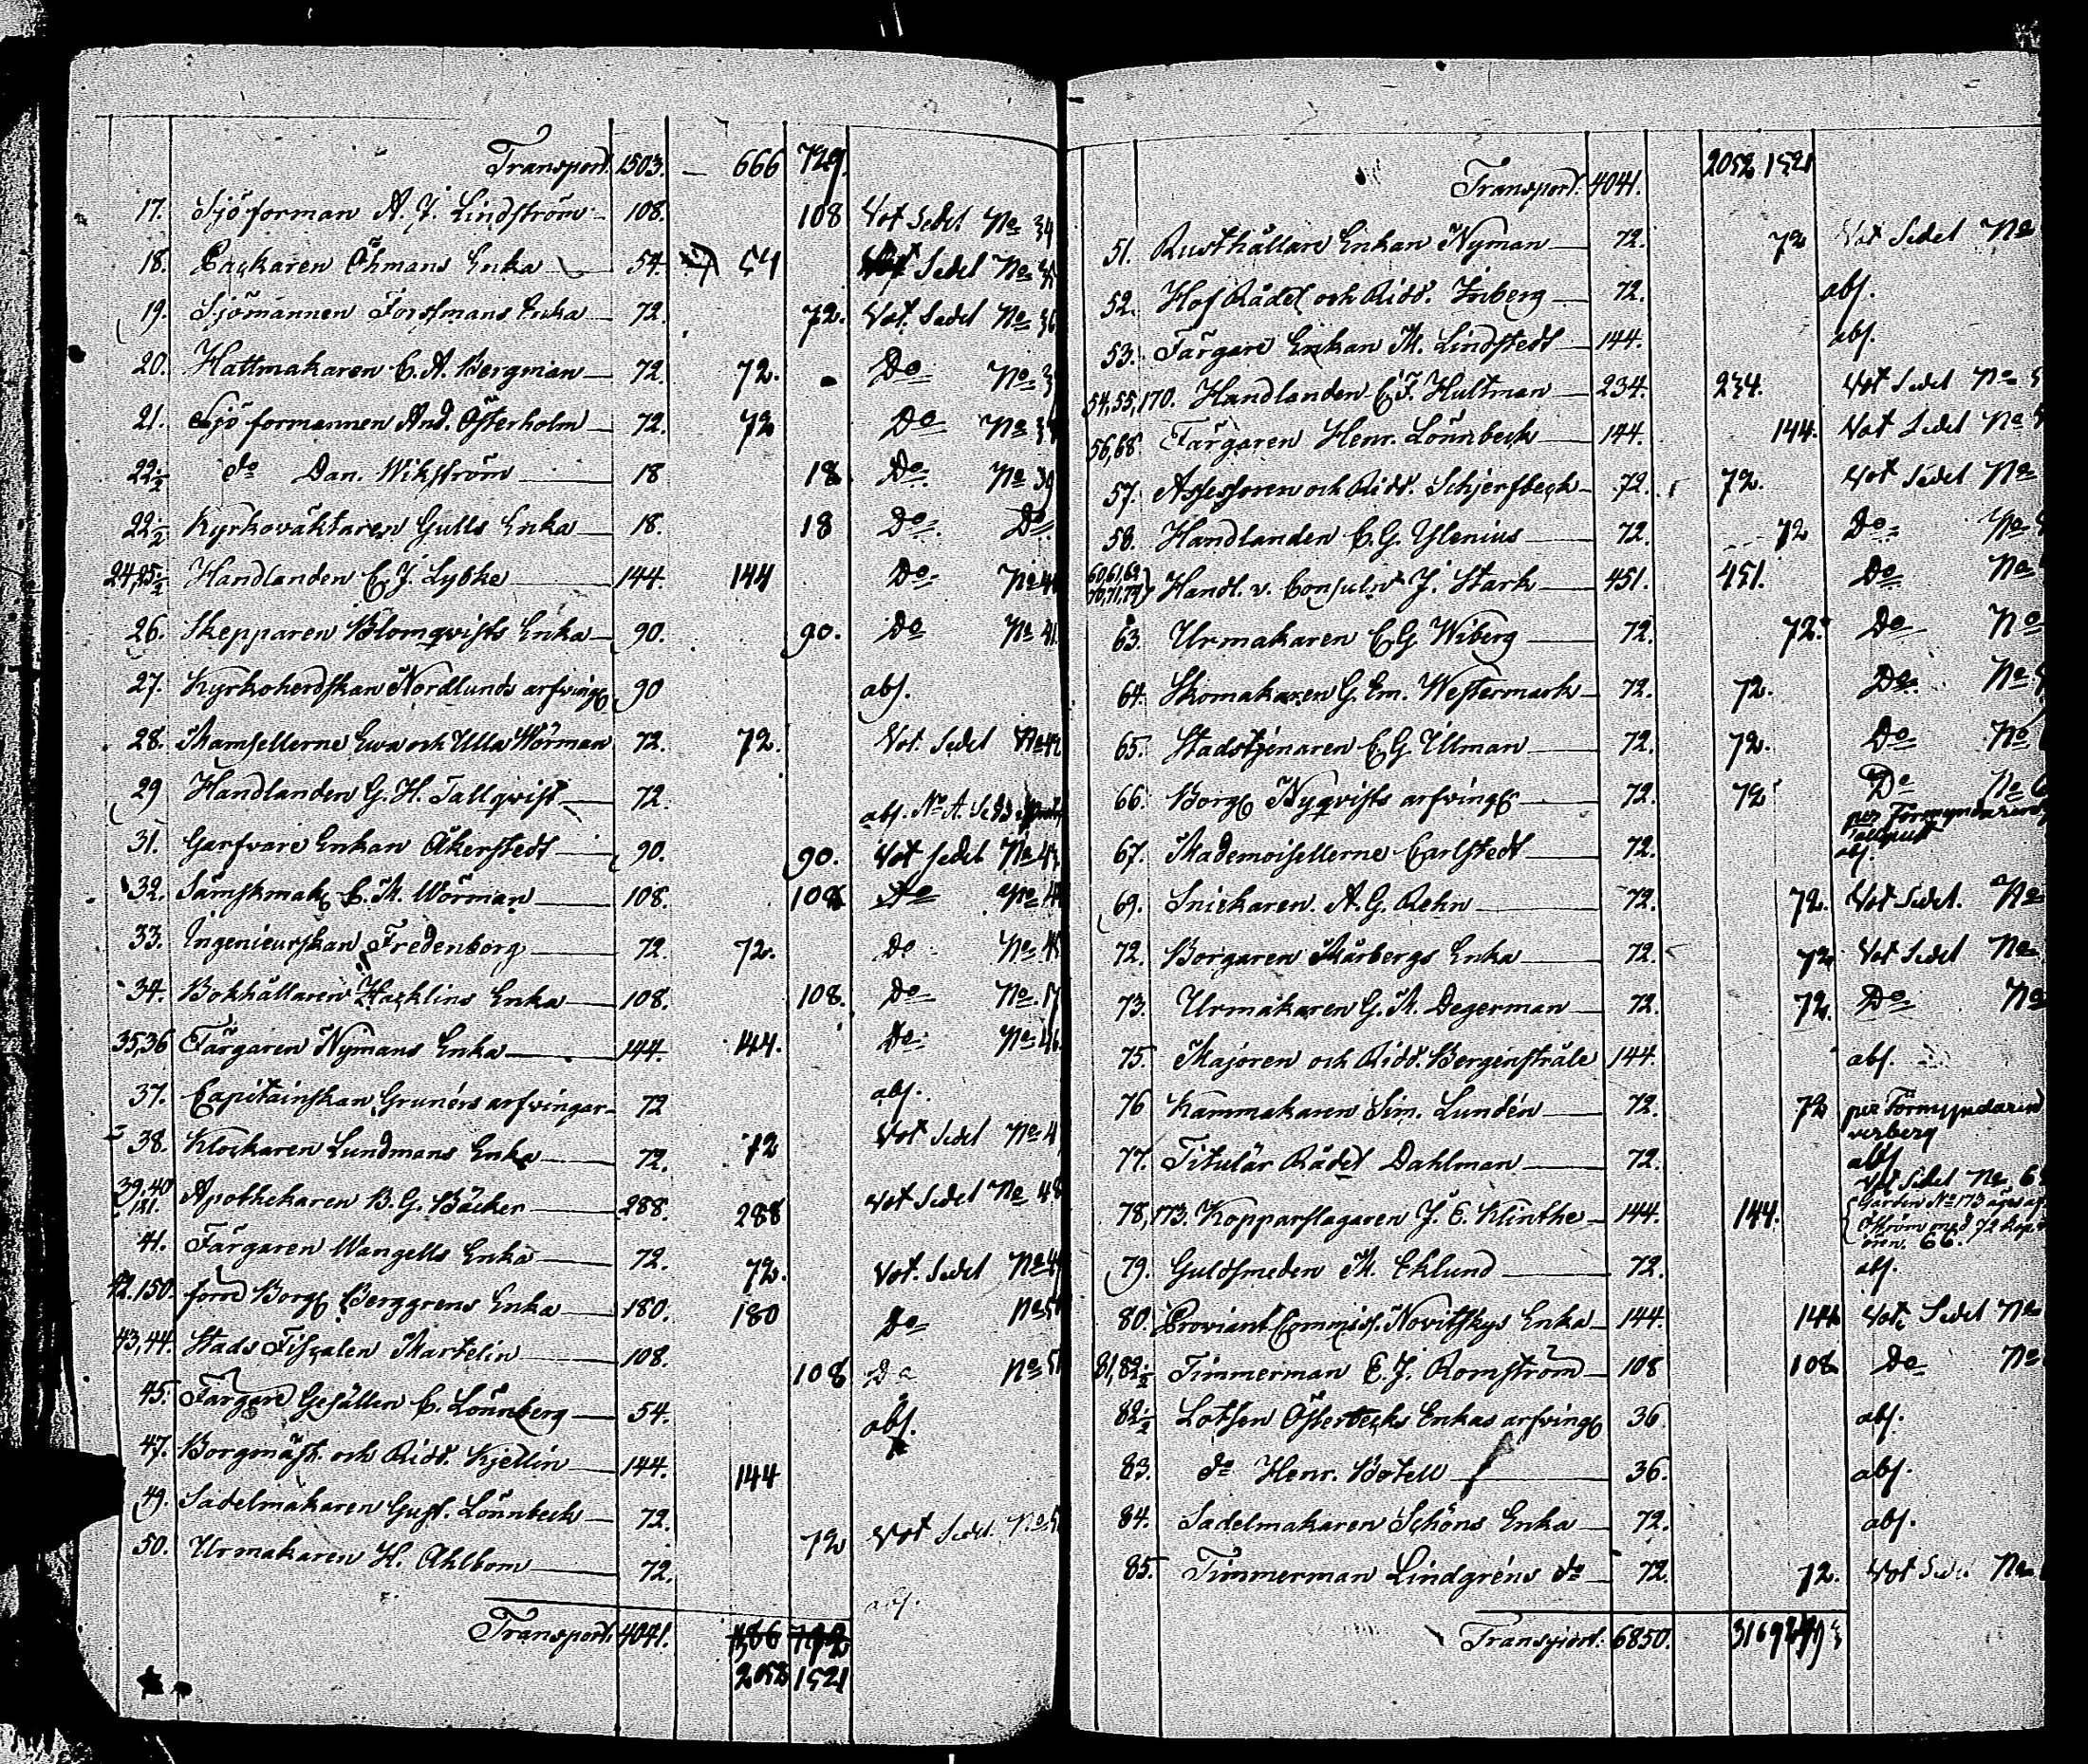 Transport. 1503. — 666 729.
17. Sjöforman A. J. Lindström 108. 108 Vot Sedel No 34
18. Packaren Öhmans Enka 54. 54 Vot Sedel No
19. Sjömannen Forssmans Enka 72. 72. Vot. Sedel No 36
20. Hattmakaren C. A. Bergman 72. 72. Do No
21. Sjöformannen And. Österholm 72. 72 Do No
22 1/2 do Dan. Wikström 18 18 Do No 39
22 1/2 Kyrkováktaren Gulls Enka 18. 18 Do Do
24, 25 1/2 Handlanden C. J. Lybke 144. 144 Do No
26. Skepparen Blomqvists Enka 90. 90. Do No 41
27. Kyrkoherdskan Nordlunds arfving 90 abs.
28. Mamsellerne Ewa och Ulla Wörman 72. 72. Vot. Sedel No 42
29 Handlanden G. H. Tallqvist 72. abs. No A.
31. Garfvare Enkan Åkerstedt 90. 90. Vot sedel No 43
32. Sämskmak C. M. Wörman 108. 108 Do No
33. Ingenieurskan Fredenborg 72. 72. Do No
34. Bokhållaren Hacklins Enka 108. 108. Do No 17
35, 36 Färgaren Nymans Enka 144. 144. Do No 46
37. Capitainskan Grunérs arfvingar 72 abs.
38. Klockaren Lundmans Enka 72. 72 Vot Sedel No
39, 40 121. Apothekaren B. G. Bäcker 288. 288 Vot Sedel No 48
41. Färgaren Wangells Enka 72. 72. Vot. Sedel No
42. 150. förre Borg Berggrens Enka 180. 180 Do No
43, 44. Stads Fiscalen Martelin 108. 108 Do No
45. Färgare Gesällen C. Lönnberg 54. abs.
47. Borgmäst. och Ridd. Kjellin 144. 144
49. Sadelmakaren Gust. Lönnbeck 72. 72 Vot Sedel. No
50. Urmakaren H. Ahlbom 72. abs.
Transport. 4041.
2052 1521
Transport. 4041. 2052 1521
51. Rusthållare Enkan Nyman 72. 72 Vot Sedel No
52. Hof Rådet och Ridd. Inberg 72. abs.
53. Färgare Enkan M. Lindstedt 144. abs.
54, 55, 170. Handlanden C. F. Hultman 234. 234. Vot Sedel No
56, 68. Färgaren Henr. Lönnbeck 144. 144. Vot Sedel No
57. Assessoren och Ridd. Schjerfbeck 72. 72. Vot Sedel No
58. Handlanden C. G. Ylenius 72. 72 Do No
60, 61, 62 70, 71, 74 Handl. v. Consuln J. Stark 451. 451. Do No
63. Urmakaren C. G. Wiberg 72. 72. Do No
64. Skomakaren G. Em. Westermark 72. 72. Do No
65. Stadstjenaren C. G. Ullman 72. 72. Do No
66. Borg Nyqvists arfving 72. 72 Do No
per Förmyndaren
67. Mademoisellerne Carlstedt 72. abs.
69. Snickaren. A. G. Rehn 72. 72. Vot Sedel. No
72. Borgaren Mårbergs Enka 72. 72. Vot Sedel No
73. Urmakaren G. M. Degerman 72. 72. Do No
75. Majoren och Ridd. Bergenstråle 144. abs.
76 Kammakaren Sim. Lundén 72. 72 per Förmyndaren
77. Titulär Rådet Dahlman 72. abs
Vot Sedel No
78, 173. Kopparslagaren J. E. Klinthe 144. 144. Gården No 173 äges af
Öström med 72 kop.
79. Guldsmeden M. Eklund 72. abs.
80. Proviant Commiss. Novitskys Enka 144. 144 Vot. Sedel No
81, 82 1/2 Timmerman C. J. Romström 108 108 Do No
82 1/2 Lotsen Österbecks Enkas arfving 36 abs.
83. do Henr. Botell 36. abs.
84. Sadelmakaren Schöns Enka 72. abs.
85. Timmerman Lindgréns do 72. 72. Vot No
Transport. 6850. 3169